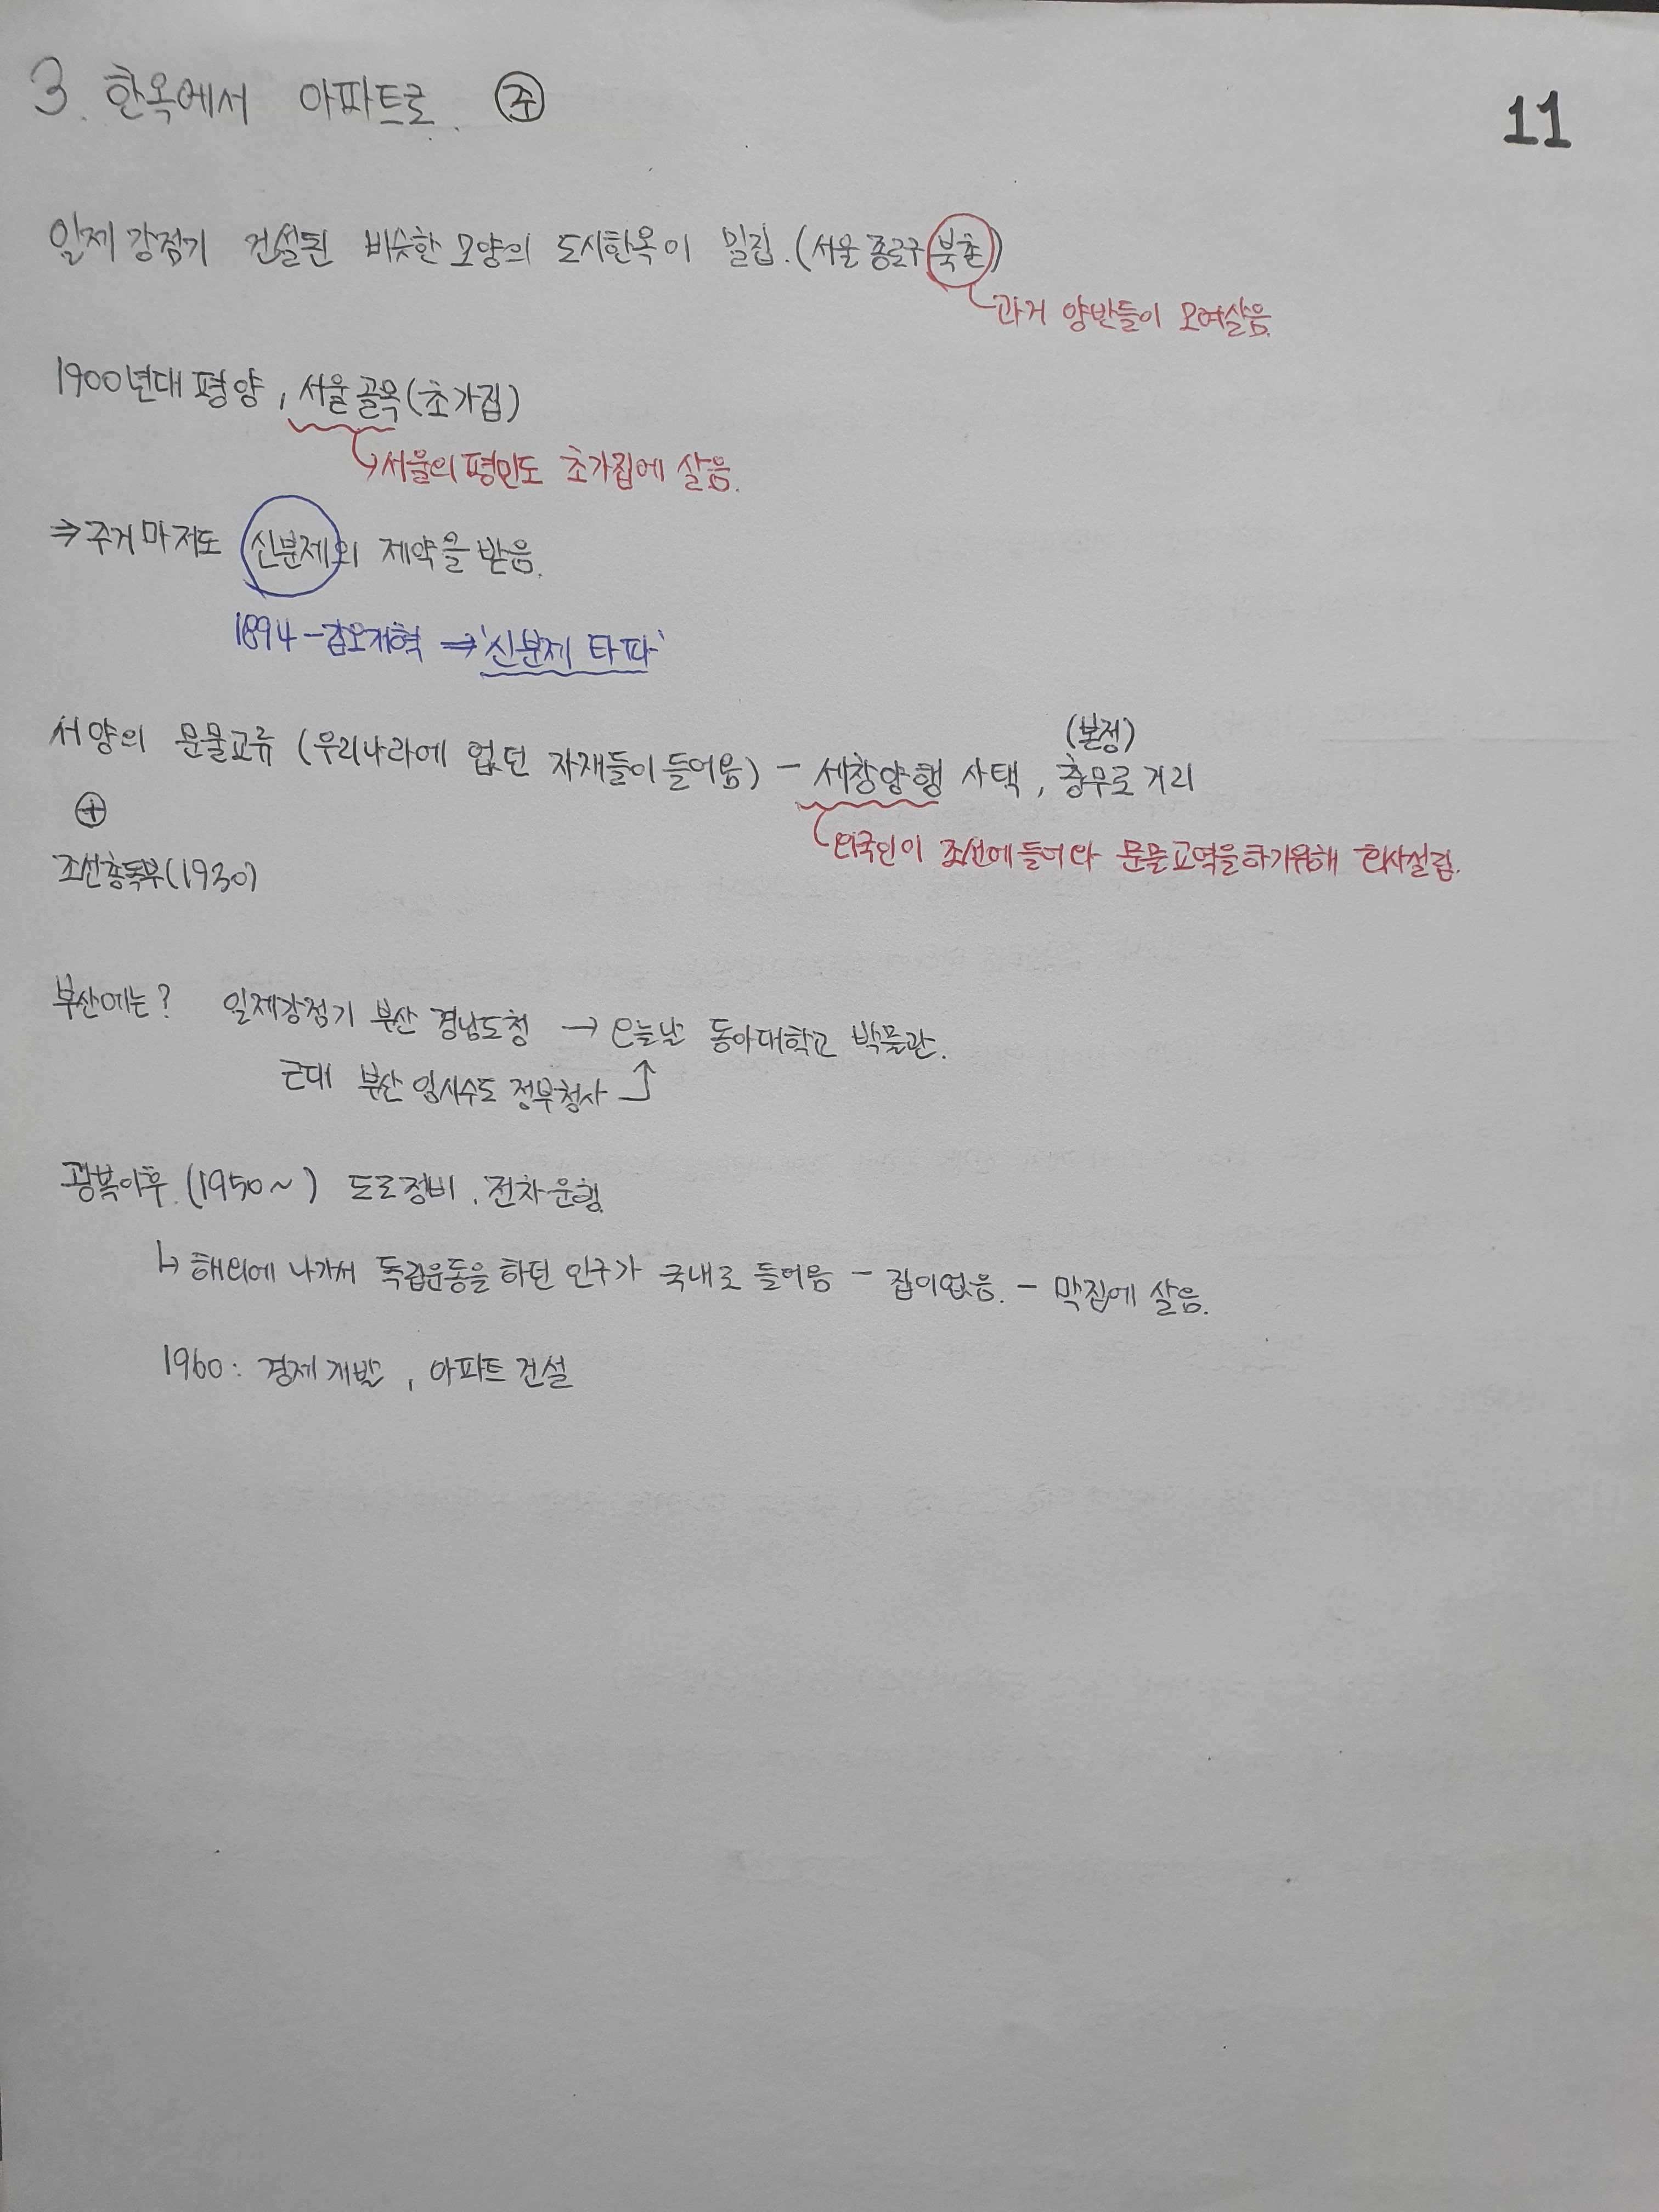 3. 한옥에서 아파트로. 주
11
일제강점기 건설된 비슷한 모양의 도시한옥이 밀집. (서울 종로구 북촌)
과거 양반들이 모여살음.
1900년대 평양, 서울 골목 (초가집)
↳서울의 평민도 초가집에 살음.
⇒ 주거마저도 신분제의 제약을 받음.
1894 - 갑오개혁 ⇒ '신분제 타파'
(본정)
서양의 문물교류 (우리나라에 없던 자재들이 들어옴) - 세창양행 사택, 충무로 거리
외국인이 조선에 들어와 문물교역을 하기위해 회사설립.
⊕
조선총독부(1930)
부산에는? 일제강점기 부산 경남도청 → 오늘날 동아대학교 박물관.
근대 부산 임시수도 정부청사 ↑
광복이후. (1950~) 도로정비, 전차운행.
↳ 해외에 나가서 독립운동을 하던 인구가 국내로 들어옴 - 집이없음. - 막집에 살음.
1960: 경제개발, 아파트 건설